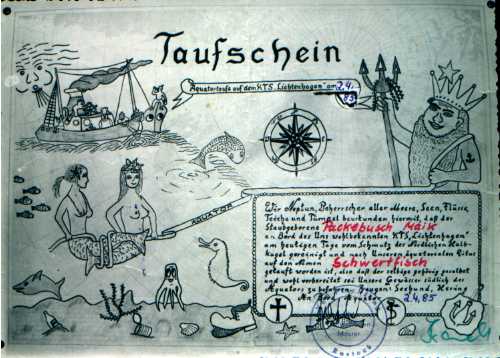 Taufschein
Äquatortaufe auf dem KTS „Lichtenhagen" am 2.4.
83
ÄQUATOR
Wir Neptun, Beherrscher aller Meere, Seen, Flüsse,
Teiche und Tümpel beurkunden hiermit, daß der
Staubgeborene Packebusch Maik
an Bord des Uns wohlbekannten KTS „Lichtenhagen"
am heutigen Tage vom Schmutz der Nördlichen Halb-
kugel gereinigt und nach Unserem äquatorialen Ritus
auf den Namen Schwertfisch
getauft worden ist, also daß der selbige gehörig gesalbt
und wohl vorbereitet sei Unsere Gewässer südlich des
Äquators zu befahren. Zeugen: Seehund, Hering
An Bord, Äquator 2.4.85
Rostock